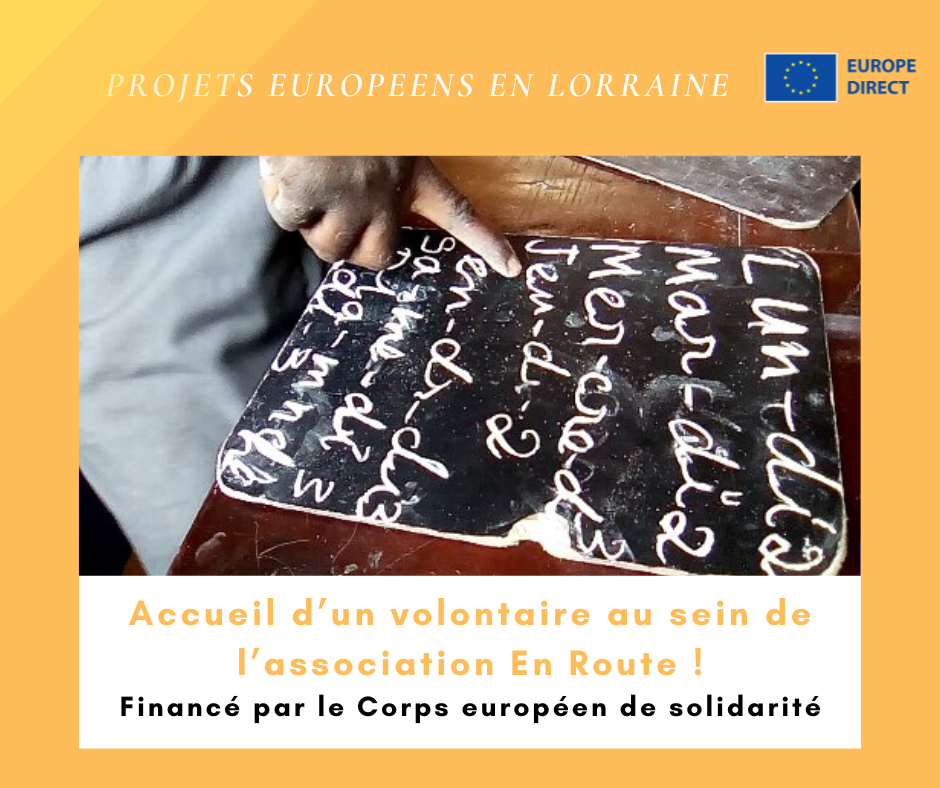 PROJETS EUROPEENS EN LORRAINE
EUROPE
DIRECT
Lun-di2
Mar-di2
Mer-cre-d3
Jeu-di-2
Accueil d’un volontaire au sein de
l’association En Route !
Financé par le Corps européen de solidarité